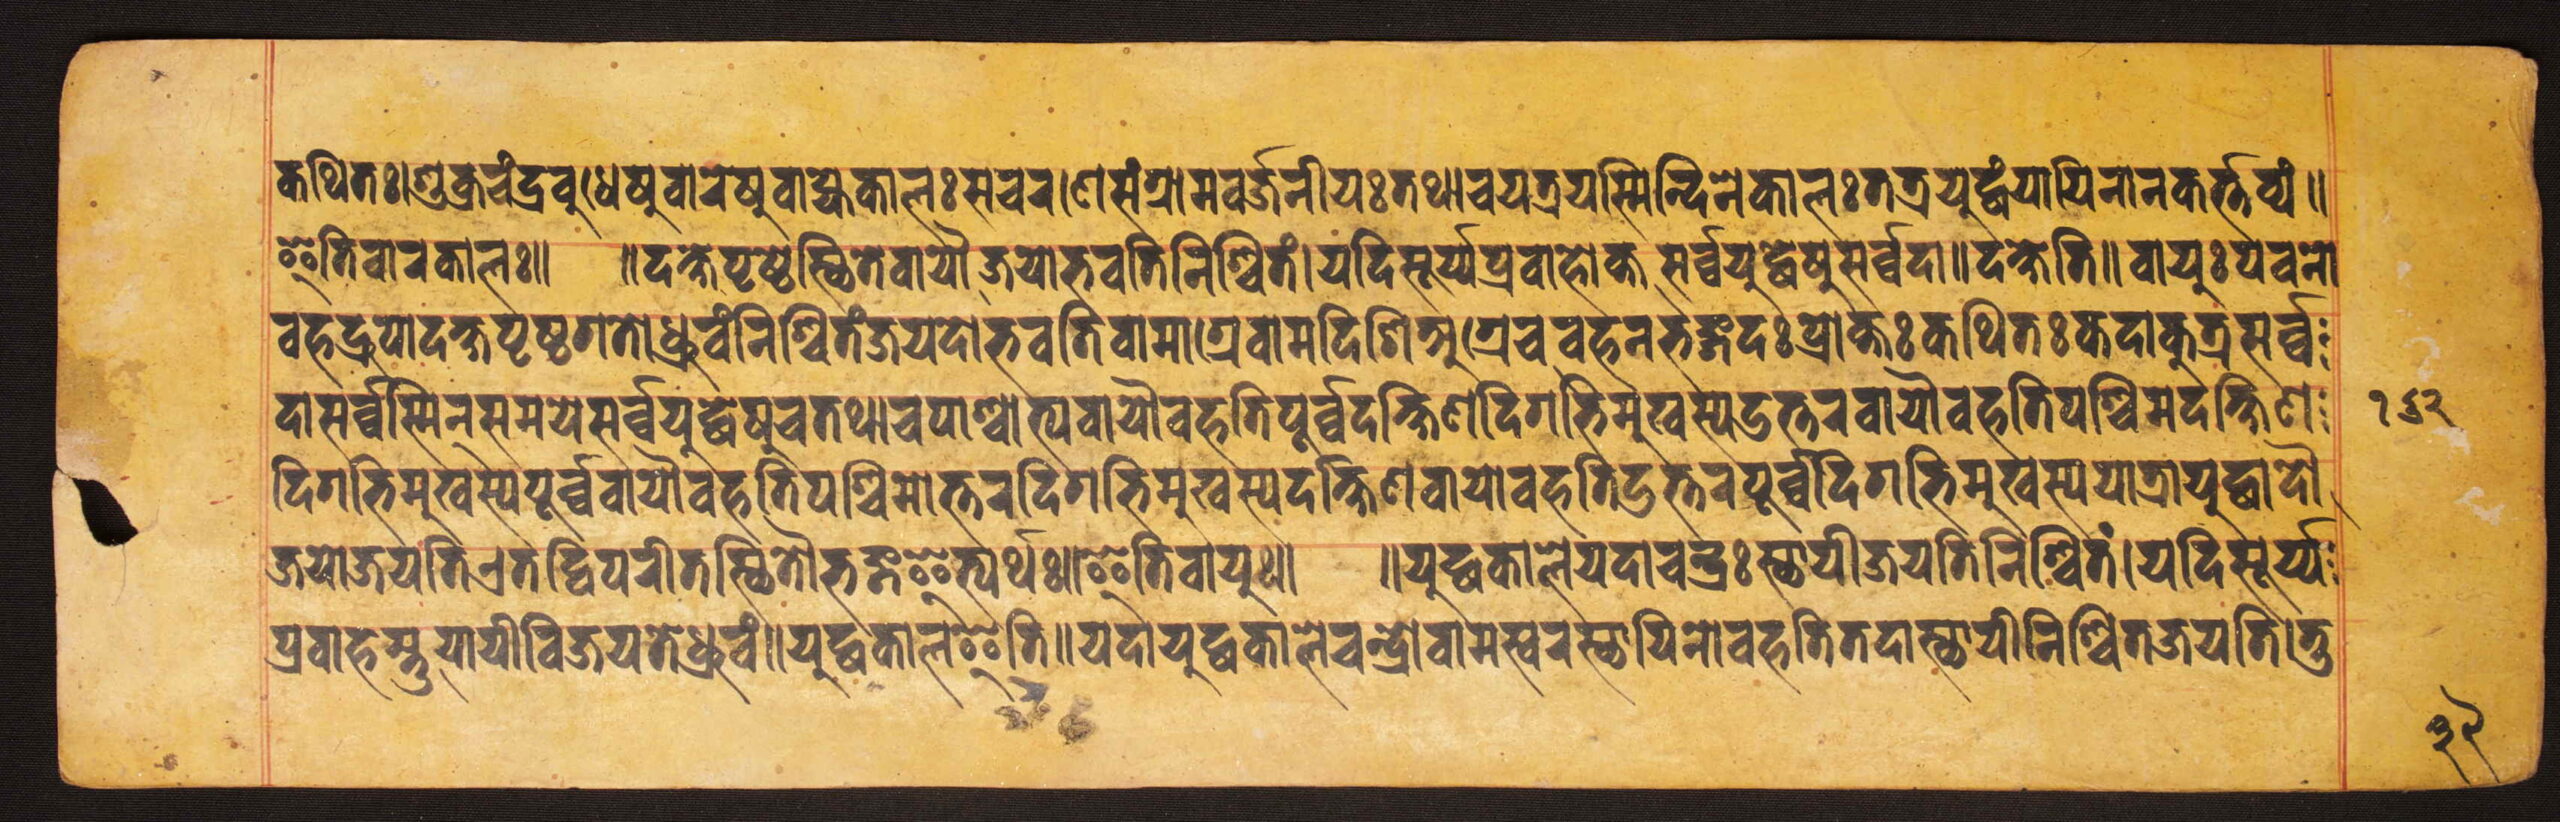 कथितः।शुक्रचंद्रबुधेषुवारेषुवाह्यकालःसचरणेसंग्रामवर्ज्जनीयःतथाचयत्रयस्मिन्दिनेकालःतत्रयुद्धंयायिनानकर्त्तव्यं॥
इतिवारकालः॥ ॥दक्षेपृष्ठेस्थितेवायौजयोभवतिनिश्चितं।यदिसूर्य्यप्रवाहोक्त सर्व्वयुद्धेषुसर्व्वदा॥दक्षेति॥वायुःपवनो
वहद्रुपादक्षपृष्ठगतोध्रुवंनिश्चितंजयदोभवतिवामाग्रेवामदिशिअग्रेचवहनभङ्गदःप्रोक्तःकथितःकदाकुत्रसर्व्व
दासर्व्वस्मिन्समयेसर्व्वयुद्धेषुचतथाचपाश्चात्यवायौवहतिपूर्व्वदक्षिणदिगभिमुखस्यउत्तरवायौवहतिपश्चिमदक्षिण
१८२
दिगभिमुखस्यपूर्व्ववायौवहतिपश्चिमोत्तरदिगभिमुखस्यदक्षिणवायोवहतिउत्तरपूर्व्वदिगभिमुखस्ययात्रायुद्धादौ
जयोजयतिएतद्विपरीतस्थितौभङ्गइत्यर्थः॥इतिवायुः॥ ॥युद्धकालेयदाचन्द्रःस्थायीजयतिनिश्चितं।यदिसूर्य्य
प्रवाहस्तुयायीविजयतेध्रुवं॥युद्धकालइति॥यदायुद्धकालेचन्द्रोवामस्वरस्थायिनोवहतितदास्थायीनिश्चितजयति।तु